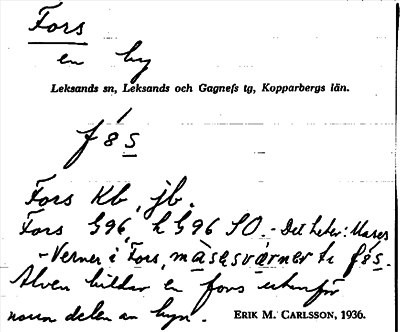 Fors
en by
Leksands sn, Leksands och Gagnefs tg, Kopparbergs län.
f 8 s
Fors Kb, jb.
Fors G96, h G96 SO. - Det heter: Mases
- Verner i Fors, màsəsvæ̀rnər i f8s.
Älven bildar en fors utanför
norra delen av byn.
ERIK M. CARLSSON, 1936.